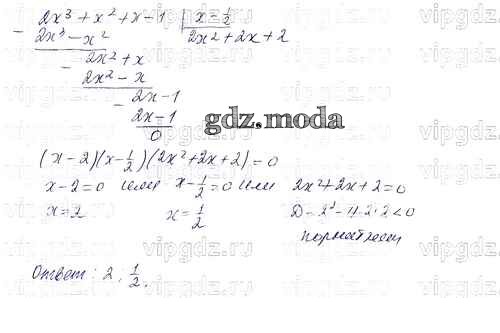 2x³ + x² + x - 1 | x - 1/2
2x³ - x² 2x² + 2x + 2
2x² + x
2x² - x
2x - 1
2x - 1
0
gdz.moda
(x-2)(x-1/2)(2x²+2x+2)=0
x-2=0 или x-1/2=0 или 2x²+2x+2=0
x=2 x=1/2 D=2²-4·2·2<0
корней нет
Ответ: 2, 1/2.
vipgdz.ru